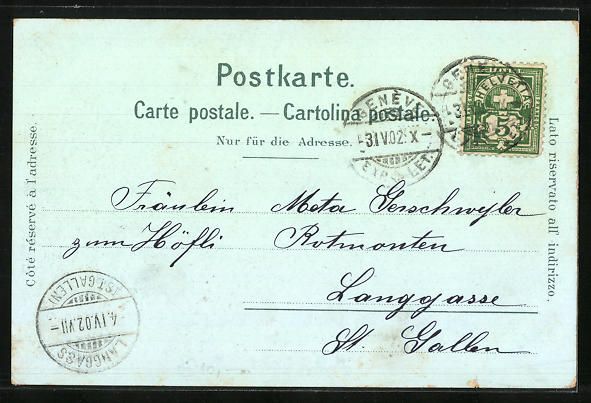 Postkarte.
Carte postale. — Cartolina postale.
Nur für die Adresse.
Côté réservé à l'adresse.
Lato riservato all' indirizzo.
HELVETIA
5
GENÈVE
-3IV.02.X-
EXP. LET.
Fräulein Meta Gerschwyler
zum Höfli Rotmonten
Langgasse
St. Gallen
LANGGASS
4.IV.02.VII-
(ST. GALLEN)